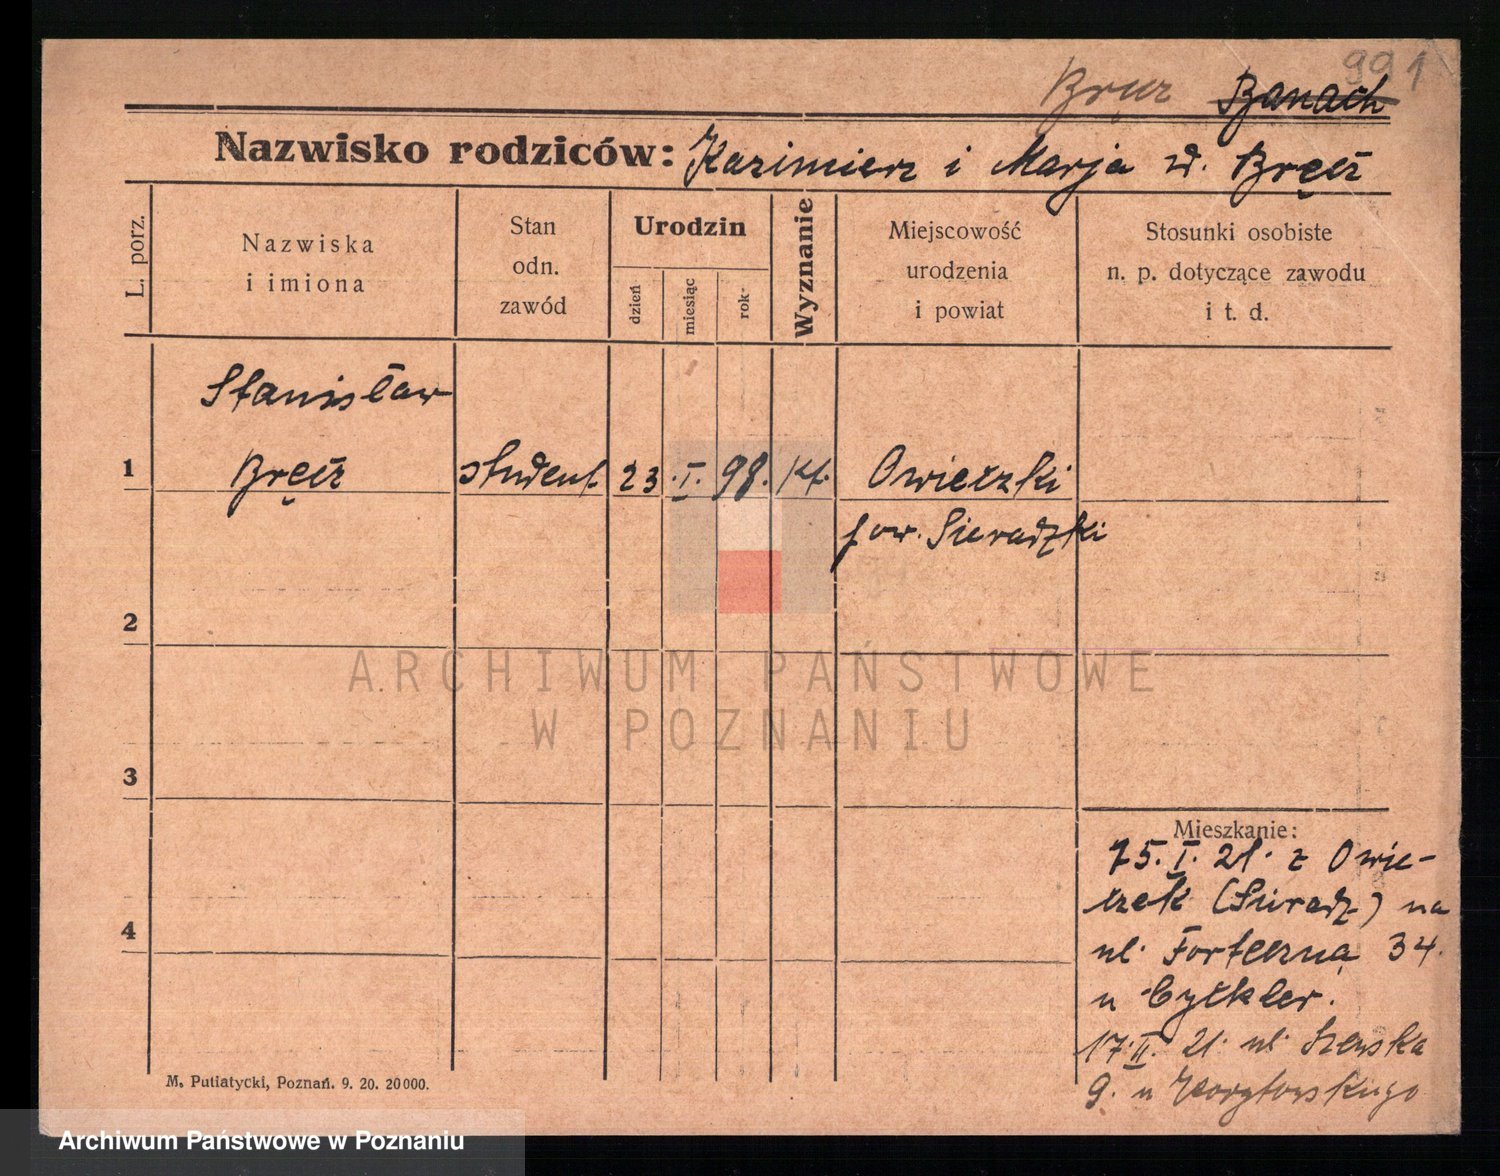 991
Bręcz Banach
Nazwisko rodziców: Kazimierz i Marja d. Bręcz
L. porz.
Nazwiska
i imiona
Stan
odn.
zawód
Urodzin
dzień
miesiąc
rok-
Wyznanie
Miejscowość
urodzenia
i powiat
Stosunki osobiste
n. p. dotyczące zawodu
i t. d.
Stanisław
1 Bręcz student. 23 .I. 98. kt. Owieczki
pow. Sieradzki
2
ARCHIWUM PAŃSTWOWE
W POZNANIU
3
Mieszkanie:
25. I. 21. z Owie-
czek (Sieradz) na
4
ul. Forteczną 34.
u
17. II. 21. ul. Szewska
9. u
M. Putiatycki, Poznań. 9. 20. 20000.
Archiwum Państwowe w Poznaniu